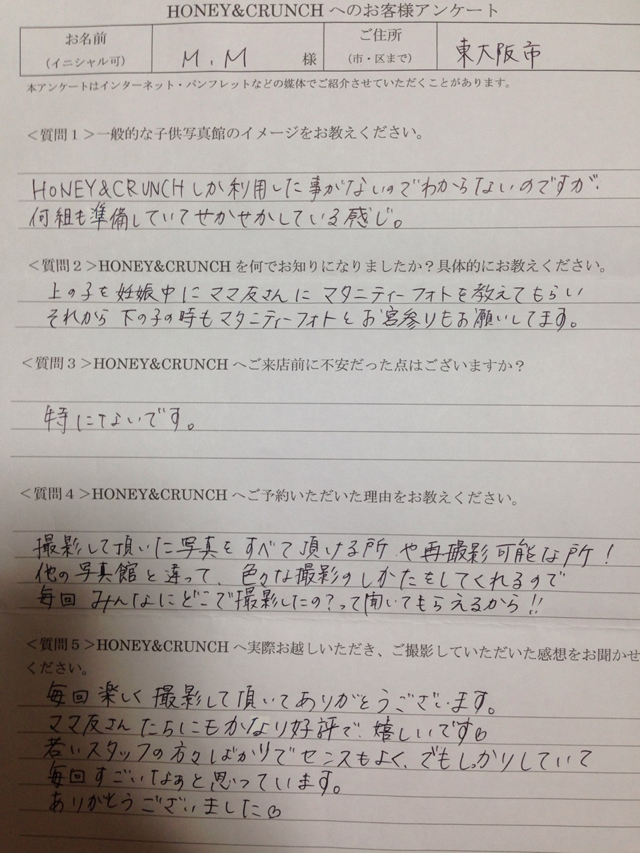 HONEY&CRUNCH へのお客様アンケート
お名前 ご住所
(イニシャル可) M.M 様 (市・区まで) 東大阪市
本アンケートはインターネット・パンフレットなどの媒体でご紹介させていただくことがあります。
<質問1>一般的な子供写真館のイメージをお教えください。
HONEY&CRUNCHしか利用した事がないのでわからないのですが、
何組も準備していてせかせかしている感じ。
<質問2>HONEY&CRUNCH を何でお知りになりましたか?具体的にお教えください。
上の子を妊娠中にママ友さんにマタニティーフォトを教えてもらい
それから下の子の時もマタニティーフォトとお宮参りもお願いしてます。
<質問3>HONEY&CRUNCH へご来店前に不安だった点はございますか?
特にないです。
<質問4>HONEY&CRUNCH へご予約いただいた理由をお教えください。
撮影して頂いた写真をすべて頂ける所や再撮影可能な所!
他の写真館と違って、色々な撮影のしかたをしてくれるので
毎回みんなにどこで撮影したの?って聞いてもらえるから!!
<質問5>HONEY&CRUNCH へ実際お越しいただき、ご撮影していただいた感想をお聞かせ
ください。
毎回楽しく撮影して頂いてありがとうございます。
ママ友さんたちにもかなり好評で、嬉しいです
若いスタッフの方々ばかりでセンスもよく、でもしっかりしていて
毎回すごいなぁと思っています。
ありがとうございました